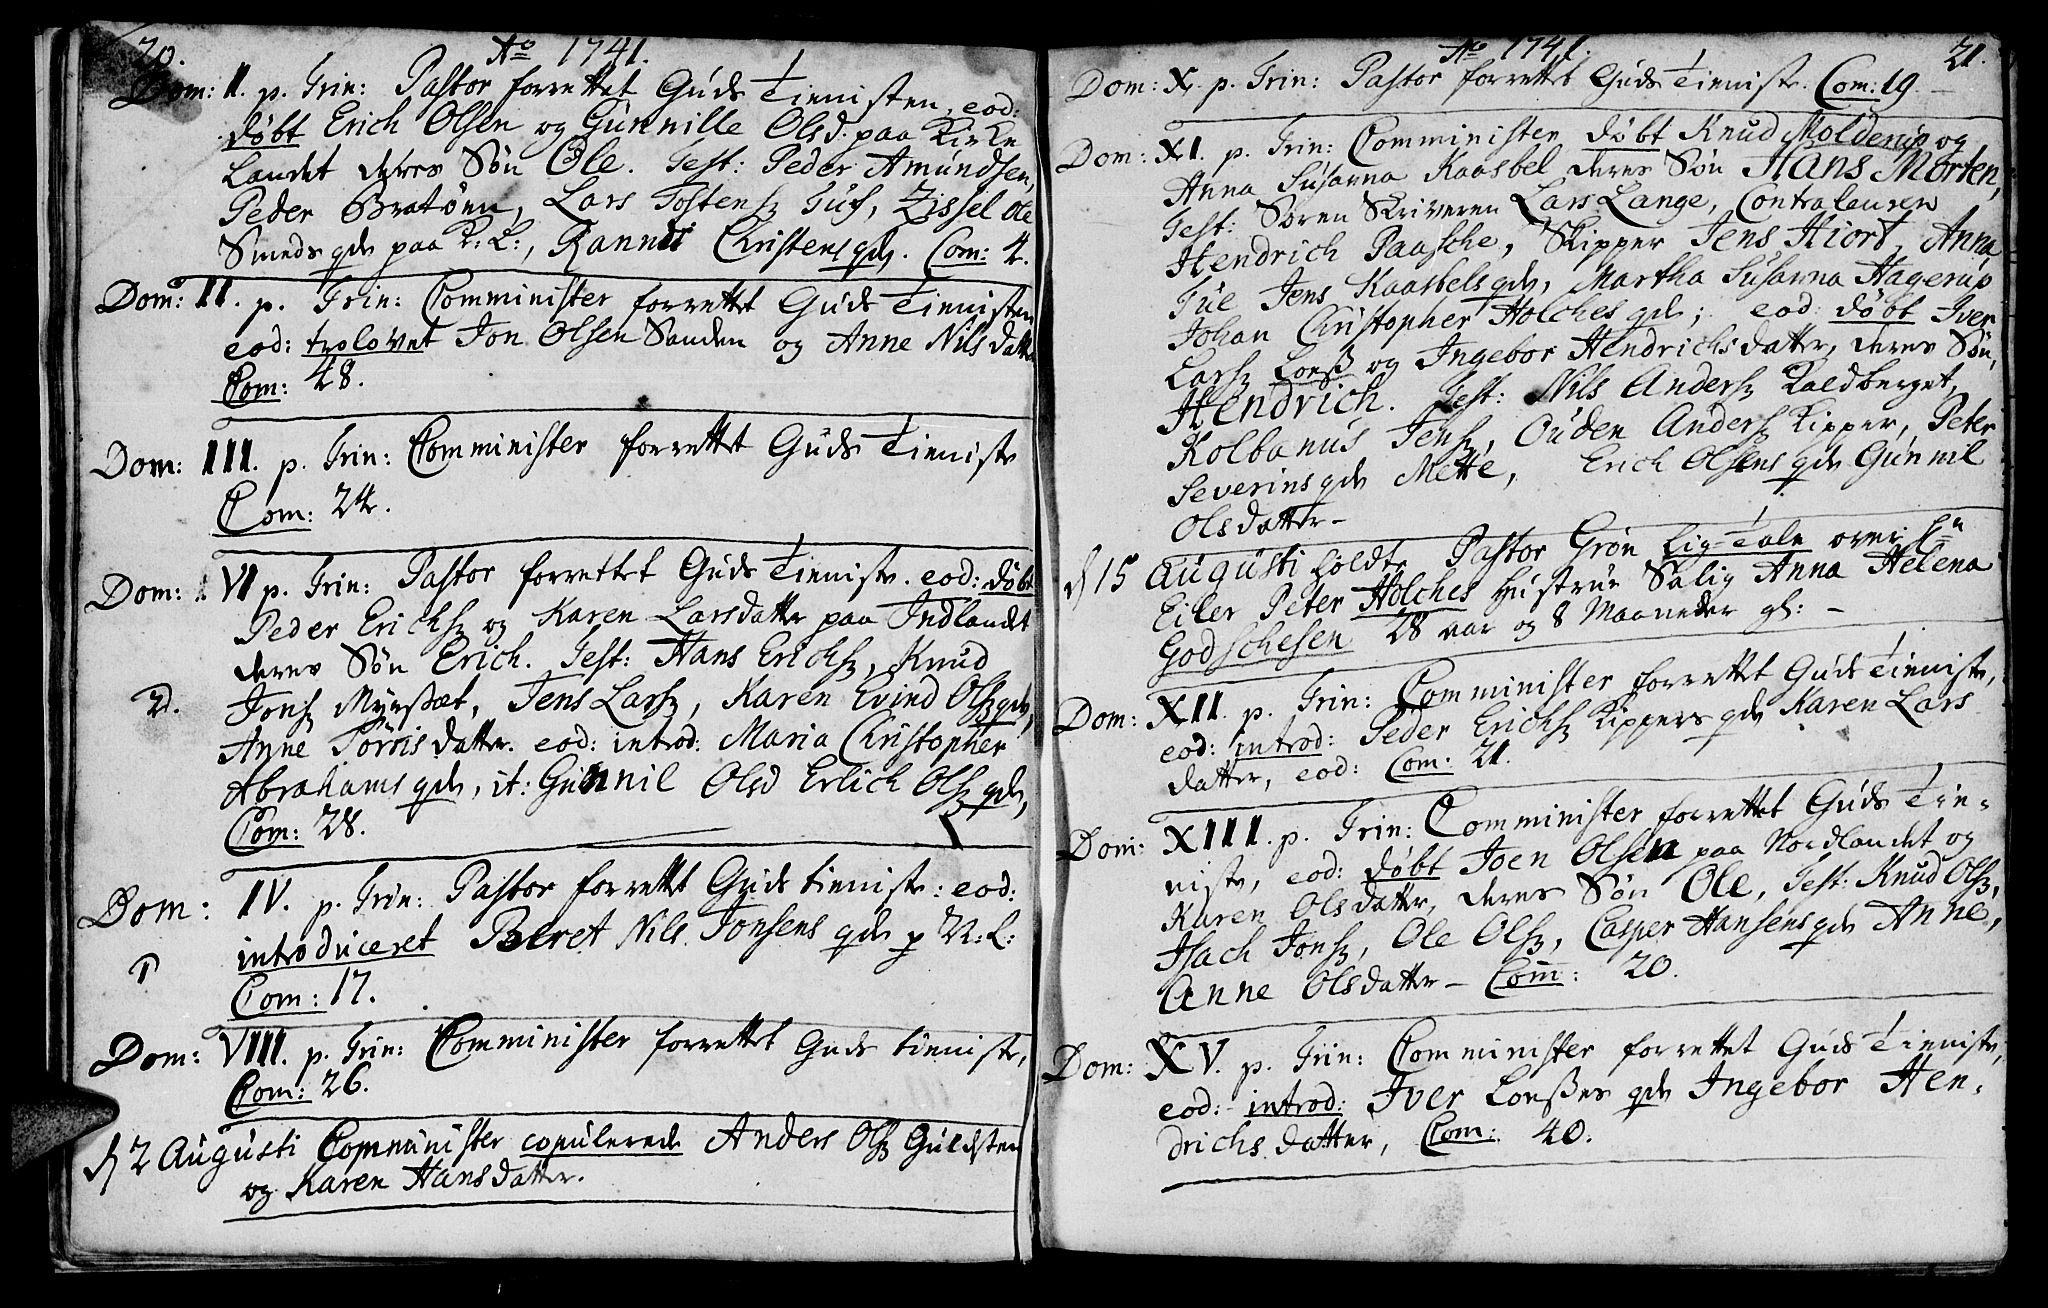 20.
Ao 1741.
Dom: II. p. Trin: Pastor forrettet Guds Tienisten, eod:
døbt Erich Olsen og Gunnille Olsd. paa Kirke
Landet deres Søn Ole. Test: Peder Amundsen,
Peder Bratøen, Lars Tostens Tuf, Zissel Ole
Smeds qde paa K: L:, Rannei Christens qde. Com: 4.
Dom: II. p. Trin: Comminister forrettet Guds Tienisten
eod: trolovet Jon Olsen Sanden og Anne Nils datter
Com: 48.
Dom: III. p. Trin: Comminister forrettet Guds Tieniste
Com: 24.
Dom: VI p. Trin: Pastor forrettet Guds Tieniste. eod: døbt
Peder Erichs: og Karen Larsdatter paa Indlandet
deres Søn Erich. Test: Hans Erichs:, Knud
D. Jons: Myrsæt, Jens Lars:, Karen Evind Ols: qde,
Anne datter. eod: introd: Maria Christopher
Abrahams qde, it: Gunnil Olsd Erlich Ols: qde,
Com: 28.
Dom: IV. p. Trin: Pastor forrettet Guds tieniste: eod:
introduceret Beret Nils Jonsens qde p N: L:
Com: 17.
Dom: VIII. p. Trin: Comminister forrettet Guds tieniste,
Com: 26.
d 2 Augusti Comminister copulerede Anders Ols: Guldsten
og Karen Hansdatter.
Ao 1741.
21.
Dom: X. p. Trin: Pastor forrettet Guds Tieniste. Com: 19 -
Dom: XI. p. Trin: Comminister døbt Knud Molderup og
Anna Susanna Kaasbel deres Søn Hans Morten,
Test: Søren Skriveren Lars Lange, Contraleuren
Hendrich Paasche, Skipper Jens Hiort, Anna
Jens Kaasbels qde, Martha Susanna Hagerup
Johan Christopher Holches qde; eod: døbt Iver
Lars: Loess og Ingebor Hendrichsdatter, deres Søn,
Hendrich. Test: Nils Anders: Kaldberget,
Kolbanus Jens:, Ouden Anders: Kipper, Peter
Severins qde Mette, Erich Olsens qde Gunnil
Olsdatter -
d 15 Augusti holdt Pastor Grøn Lig-Tale over Hn
Eiler Peter Holches Hustrue Salig Anna Helena
Godschesen 28 aar og 8 Maaneder gl: -
Dom: XII. p. Trin: Comminister forrettet Guds Tieniste,
eod: introd: Peder Erichs: Kippers qde Karen Lars
datter, eod: Com: 21.
Dom: XIII. p. Trin: Comminister forrettet Guds Tie=
niste, eod: døbt Joen Olsen paa Nordlandet og
Karen Olsdatter, deres Søn Ole, Test: Knud Ols:,
Isach Jons:, Ole Ols:, Casper Hansens qde Anne,
Anne Olsdatter - Com: 20.
Dom: XV. p. Trin: Comminister forrettet Guds Tieniste,
eod: - introd: Iver Loesses qde Ingebor Hen=
drichs datter, Com: 40.